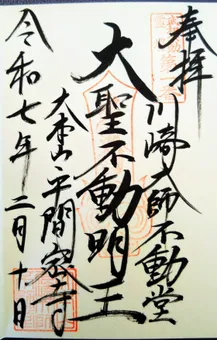 奉拝
川崎大師不動堂
大聖不動明王
大本山平間寺
令和七年二月十日